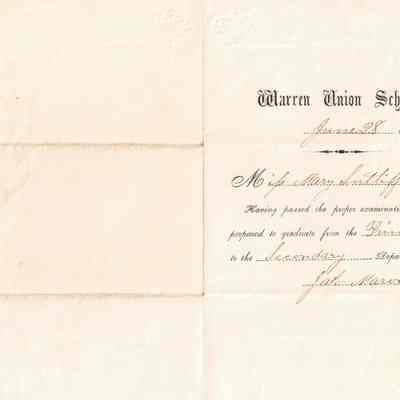 Warren Union Sch
June 28
Miss Mary
Having passed the proper examinat
prepared to graduate from the
to the Secondary Depa
Jas. Marv